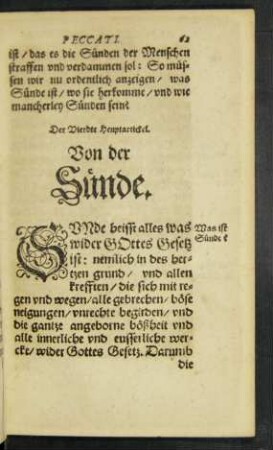 PECCATI. 62
ist / das es die Sünden der Menschen
straffen vnd verdammen sol: So müs-
sen wir nu ordentlich anzeigen / was
Sünde ist / wo sie herkomme / vnd wie
mancherley Sünden sein?
Der Vierdte Heuptartickel.
Von der
Sünde.
SVNde heisst alles was
wider GOttes Gesetz
ist: nemlich in des her-
tzen grund / vnd allen
krefften / die sich mit re-
gen vnd wegen / alle gebrechen / böse
neigungen / vnrechte begirden / vnd
die gantze angeborne bößheit vnd
alle innerliche vnd eusserliche wer-
cke / wider Gottes Gesetz. Darumb
die
Was ist
Sünde?